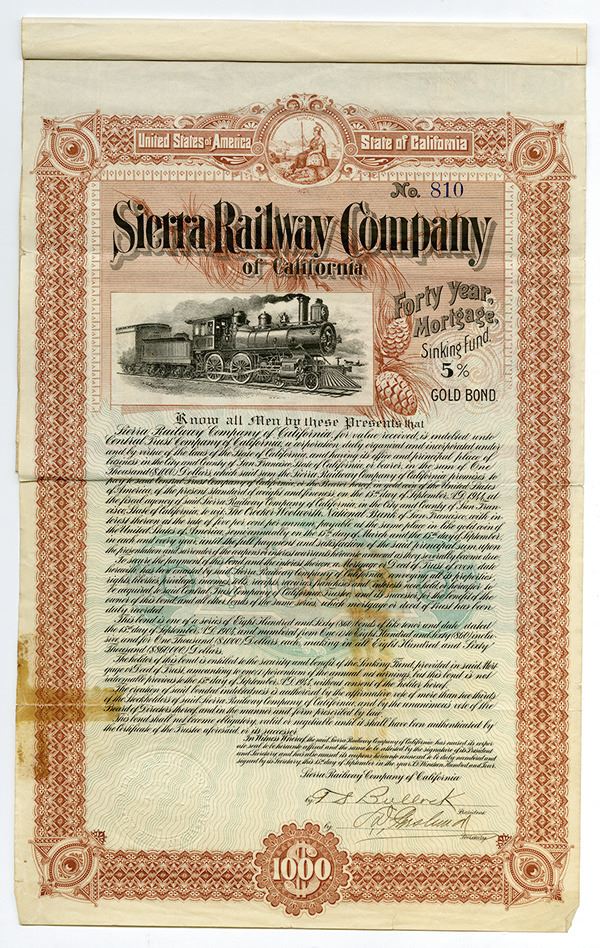 United States of America
State of California
No. 810
Sierra Railway Company
of California
Forty Year,
Mortgage,
Sinking Fund.
5%
GOLD BOND.
Know all Men by these Presents that
Sierra Railway Company of California, for value received, is indebted unto
Central Trust Company of California, a corporation duly organized and incorporated under
and by virtue of the laws of the State of California, and having its office and principal place of
business in the City and County of San Francisco, State of California, or bearer, in the sum of One
Thousand ($1,000) Dollars, which said sum the Sierra Railway Company of California promises to
pay to said Central Trust Company of California, or the bearer hereof, in gold coin of the United States
of America, of the present standard of weight and fineness, on the 15th day of September, A.D. 1944, at
the fiscal agency of said Sierra Railway Company of California, in the City and County of San Fran-
cisco, State of California, to wit: The Crocker-Woolworth National Bank of San Francisco, with in-
terest thereon at the rate of five per cent per annum, payable at the same place in like gold coin of
the United States of America, semi-annually on the 15th day of March and the 15th day of September
in each and every year, until the full payment and satisfaction of the said principal sum, upon
the presentation and surrender of the coupons or interest warrants hereunto annexed as they severally become due.
To secure the payment of this bond and the interest thereon, a Mortgage or Deed of Trust of even date
herewith has been executed by said Sierra Railway Company of California, conveying all its properties,
rights, liberties, privileges, incomes, rents, receipts, earnings, franchises and interests now held or hereafter to
be acquired, to said Central Trust Company of California, Trustee, and its successors, for the benefit of the
owner of this bond, and all other bonds of the same series, which mortgage or deed of trust has been
duly recorded.
This bond is one of a series of Eight Hundred and Sixty (860) bonds of like tenor and date, dated
the 15th day of September, A.D. 1904, and numbered from One (1) to Eight Hundred and Sixty (860) inclu-
sive, and for One Thousand ($1,000) Dollars each, making in all Eight Hundred and Sixty
Thousand ($860,000) Dollars.
The holder of this bond is entitled to the security and benefit of the Sinking Fund, provided in said Mort-
gage or Deed of Trust, amounting to one per centum of the annual net earnings, but this bond is not
redeemable previous to the 15th day of September, A.D. 1944, without consent of the holder hereof.
The creation of said bonded indebtedness is authorized by the affirmative vote of more than two-thirds
of the stockholders of said Sierra Railway Company of California, and by the unanimous vote of the
Board of Directors thereof, and in the manner and form prescribed by law.
This bond shall not become obligatory, valid or negotiable until it shall have been authenticated by
the Certificate of the Trustee aforesaid, or its successor.
In Witness Whereof the said Sierra Railway Company of California has caused its corpor-
ate seal to be hereunto affixed, and the same to be attested by the signature of its President
and Secretary, and has also caused the coupons hereunto annexed to be duly numbered and
signed by its Secretary, this 15th day of September in the year, Nineteen Hundred and Four.
Sierra Railway Company of California
by T S Bullock
President
by
Secretary
$ 1000